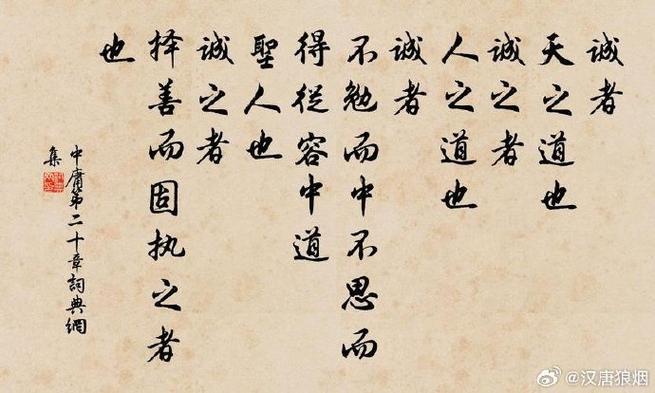 诚者
天之道也
诚之者
人之道也
诚者
不勉而中不思而
得從容中道
聖人也
诚之者
择善而固执之者
也
中庸第二十章詞典網
集
@汉唐狼烟